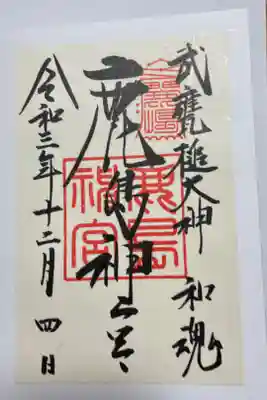 武甕槌大神 和魂
鹿島神宮
鹿島神宮
令和三年十二月四日